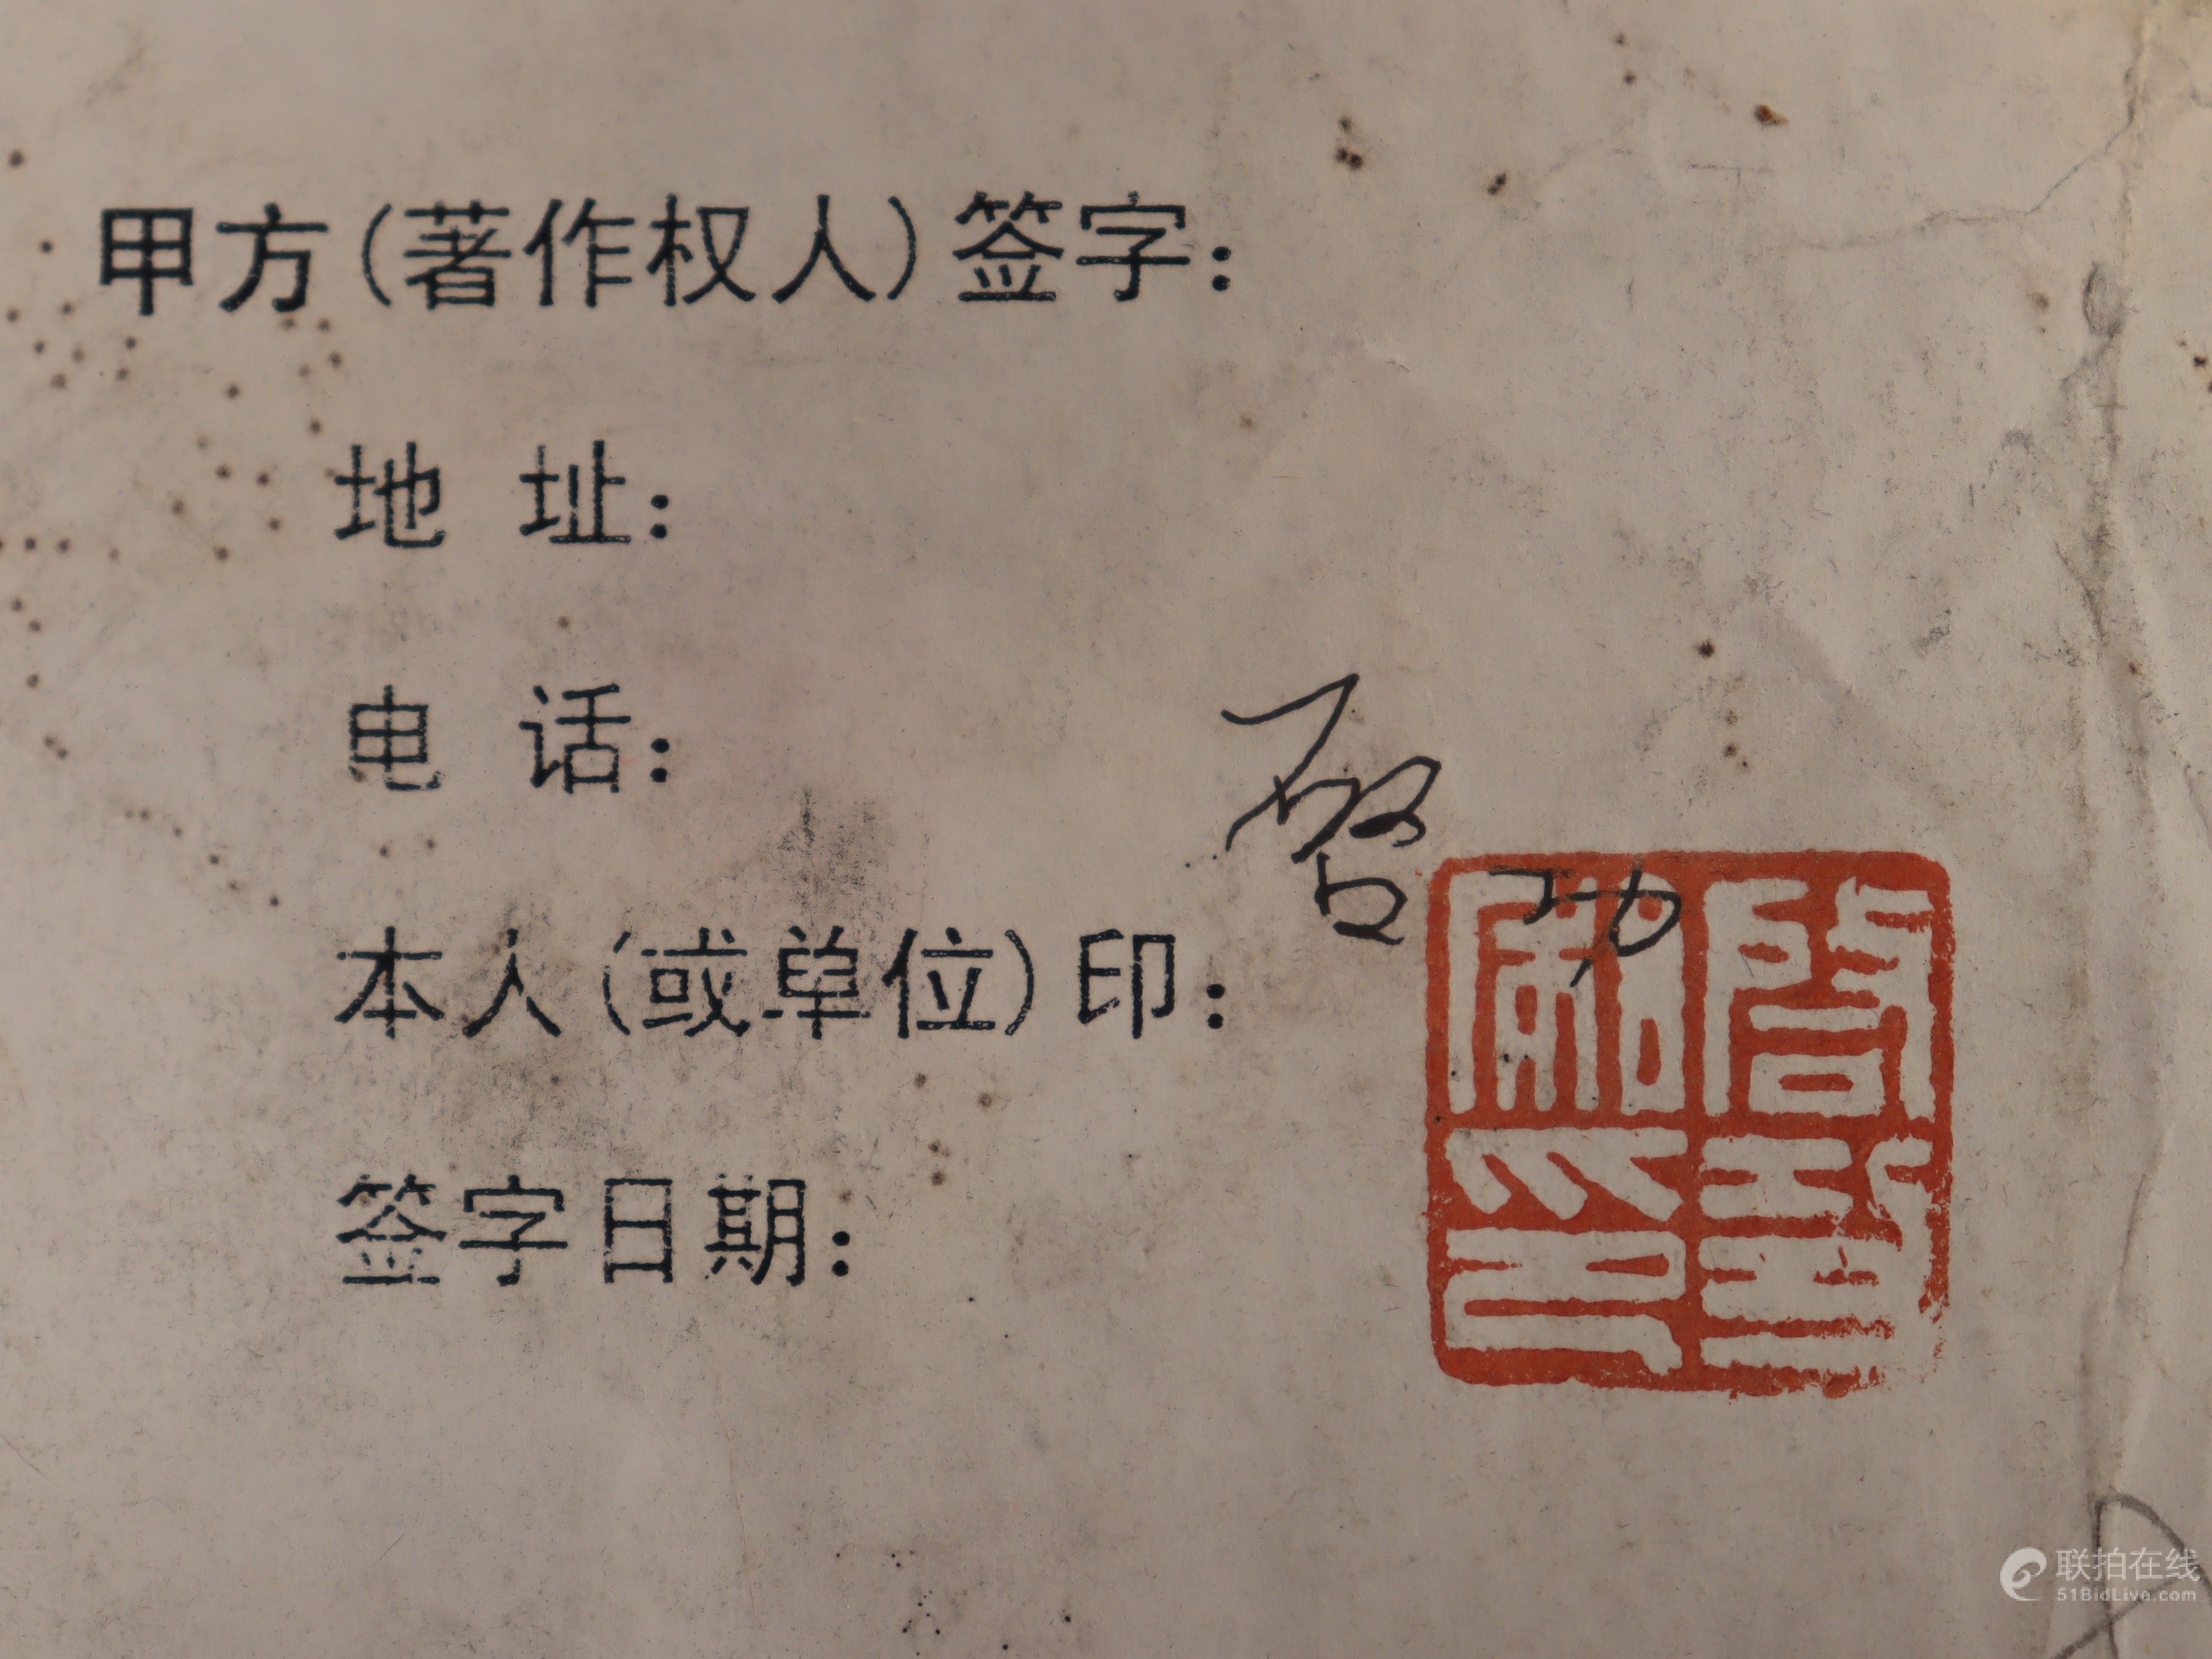 甲方(著作权人)签字:
地 址:
电 话:
启功
本人(或单位)印:
签字日期:
联拍在线
51BidLive.com